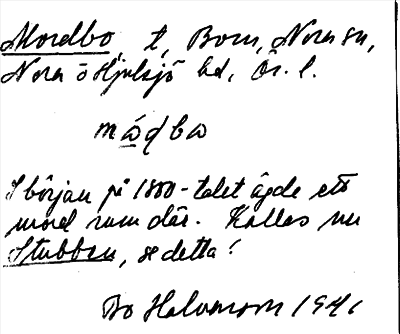 Mordbo, t, Born, Nora sn,
Nora o Hjulsjö hd, Ör. l.
mådba
I början på 1800-talet ägde ett
mord rum där. Kallas nu
Stubben, se detta!
Bo Halvarson 1941